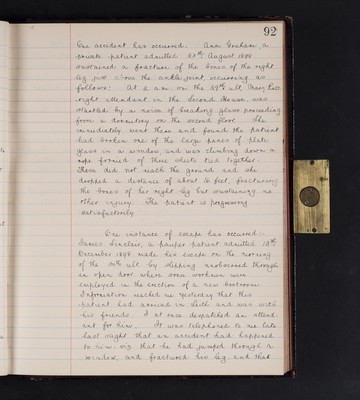 92
One accident has occurred. Ann Graham, a
private patient admitted 23rd August 1898
sustained a fracture of the bones of the right
leg just above the ankle joint, occurring as
follows: At 2 a.m. on the 29th ult. the
night attendant in the Second House was
startled by a noise of breaking glass proceeding
from a dormitory on the second floor. She
immediately went there and found the patient
had broken one of the large panes of plate
glass in a window, and was climbing down a
rope formed of three sheets tied together.
These did not reach the ground and she
dropped a distance of about 16 feet, fracturing
the bones of her right leg but sustaining no
other injury. The patient is progressing
satisfactorily
One instance of escape has occurred:-
James Sinclair, a pauper patient admitted 13th
December 1898 made his escape on the morning
of the 30th ult. by slipping unobserved through
an open door where some workmen were
employed in the erection of a new bathroom.
Information reached us yesterday that this
patient had arrived in Leith and was with
his friends. I at once despatched an attend
ant for him. It was telephoned to me late
last night that an accident had happened
to him; viz that he had jumped through a
window, and fractured his leg, and that